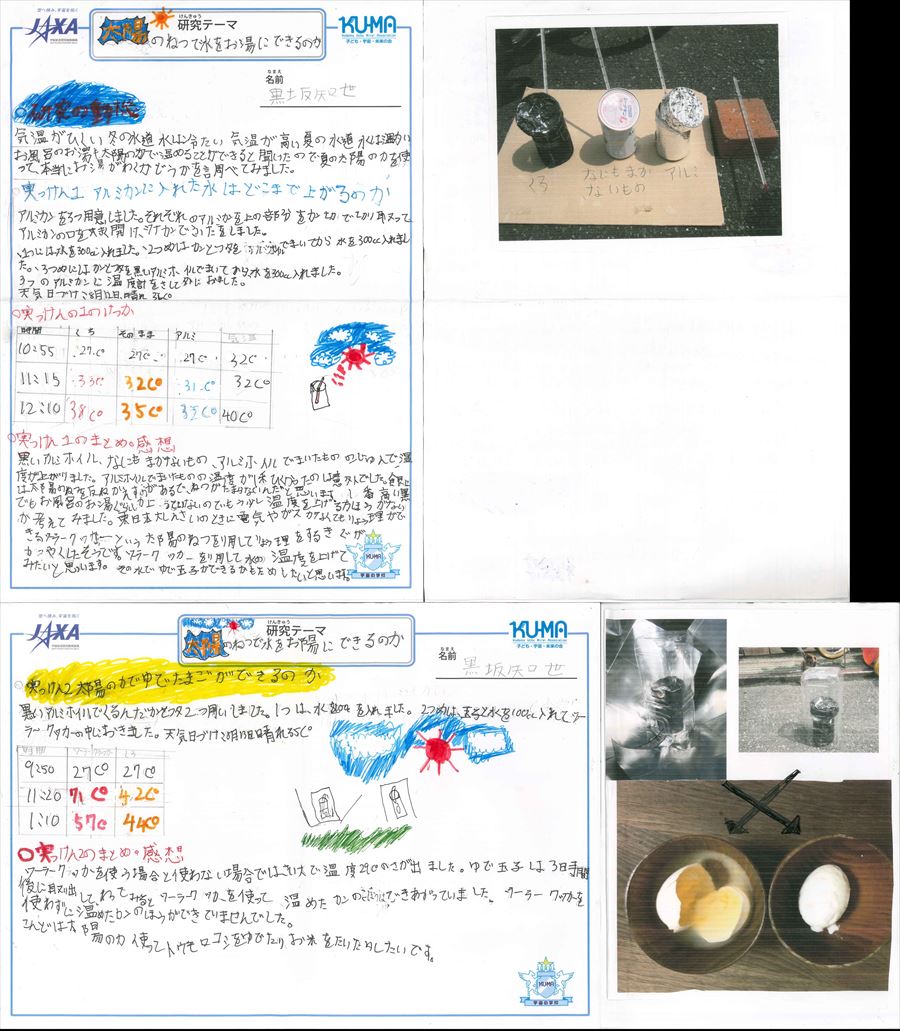 空へ挑み、宇宙を拓く
JAXA
けんきゅう
研究テーマ
太陽のねつで水をお湯にできるのか
KUMA
子ども・宇宙・未来の会
なまえ
名前
黒坂知世
○研究の動機
気温がひくい冬の水道水は冷たい 気温が高い夏の水道水は温かい
お風呂のお湯も太陽の力で温めることができると聞いたので夏の太陽の力を使
って、本当にお湯がわくかどうかを調べてみました。
実っけん1 アルミカンに入れた水はどこまで上がるのか
アルミカンを3つ用意しました。それぞれのアルミカンを上の部分を
アルミカンの口を大きく開け
1つには水を300cc入れました。2つめは 水を300cc入れまし
た。3つめには 黒いアルミホイルでまいてから、水を300cc入れました。
3つのアルミカンに温度計をさして外におきました。
○実っけんの1のけっか
時間 くろ そのまま アルミ 気温
10:55 27C° 27C° 27C° 32C°
11:15 33C° 32C° 31C° 32C°
12:10 38C° 35C° 40C°
○実っけん1のまとめ。感想
黒いアルミホイル、なにもまかないもの、アルミホイルでまいたもののじゅんで温
度が上がりました。アルミホイルでまいたものの温度が1番ひくかったのは意外でした。
は太陽のねつをはねかえす があるで、ねつがたまらないんだと思います。1番高い黒
でもお風呂のお湯ぐらいしか上 ないのでもう少し温度を上げる方ほうがない
か考えてみました。東日本大しんさいのときに電気やガスがなくてもりょう理がで
きるソーラークッカーという太陽のねつをり用してりょう理をするきぐが
かつやくしたそうです。ソーラークッカーをり用して水の温度を上げて
みたいと思います。その水でゆで玉子ができるかもためしたいと思います。
KUMA
宇宙の学校
くろ
なにもまか
ないもの
アルミ
空へ挑み、宇宙を拓く
JAXA
けんきゅう
研究テーマ
太陽のねつで水をお湯にできるのか
KUMA
子ども・宇宙・未来の会
なまえ
名前
黒坂知世
○実っけん2 太陽の力でゆでたまごができるのか
黒いアルミホイルでくるんだ 2つ用いしました。1つは、水を 入れました。2つめは玉子と水を100cc入れてソー
ラークッカーの中におきました。天気
時間 ソーラークッカー くろ
9:50 27C° 27C°
11:20 71C° 42C°
1:10 57C° 44C°
○実っけん2のまとめ。感想
ソーラークッカーを使う場合と使わない場合ではさい大で温度29C°のさが出ました。ゆで玉子は3時間
後に取出してわってみると ソーラークッカーを使って 温めたカンの できあがっていました。ソーラークッカーを
使わずに温めたカンのほうができていませんでした。
こんどは太陽の力使ってトウモロコシをゆでたりお米をたいたりしたいです。
KUMA
宇宙の学校